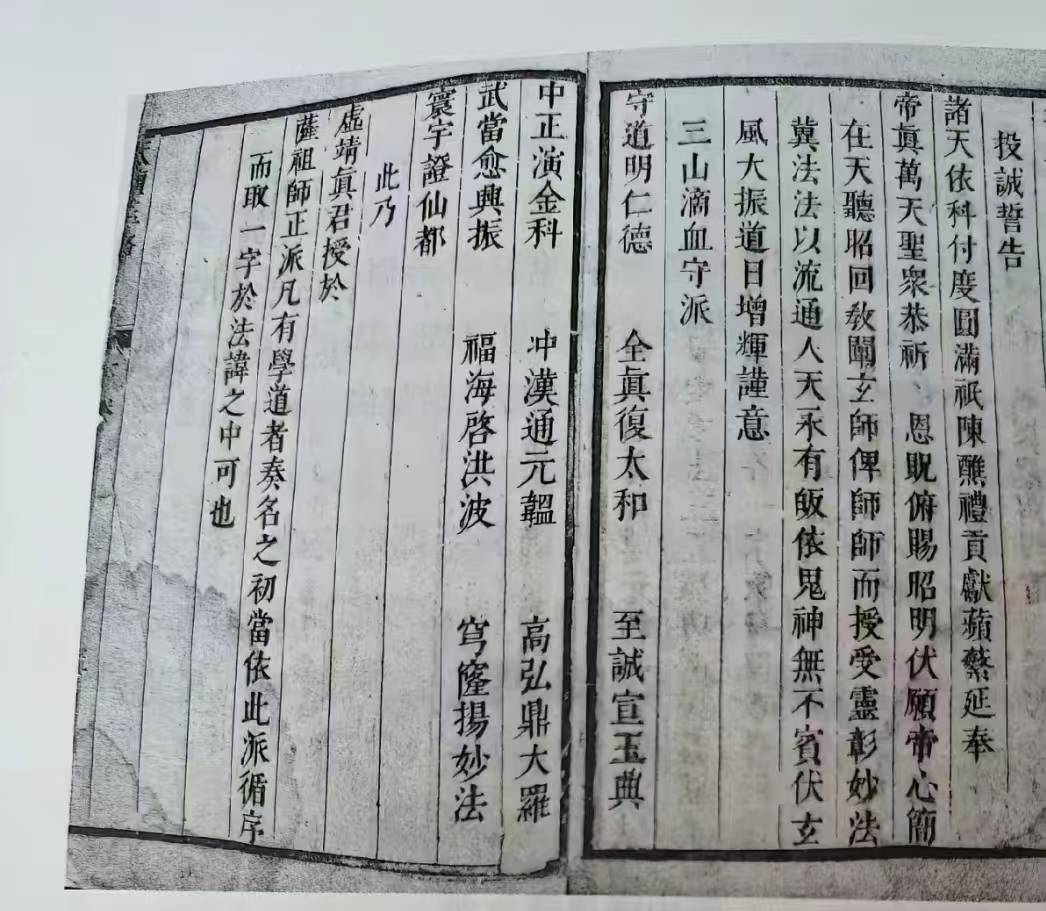 投誠誓告
諸天依科付度圓滿祇陳醮禮貢獻蘋蘩延奉
帝眞萬天聖衆恭祈 恩貺俯賜昭明伏願帝心簡
在天聽昭回敎闡玄師俾師師而授受靈彰妙法
冀法法以流通人天永有皈依鬼神無不賓伏玄
風大振道日增輝謹意
三山滴血守派
守道明仁德 全眞復太和 至誠宣玉典
中正演金科 冲漢通元韞 高弘鼎大羅
武當愈興振 福海啓洪波 穹窿揚妙法
寰宇證仙都
此乃
虛靖眞君授於
薩祖師正派凡有學道者奏名之初當依此派循序
而取一字於法諱之中可也